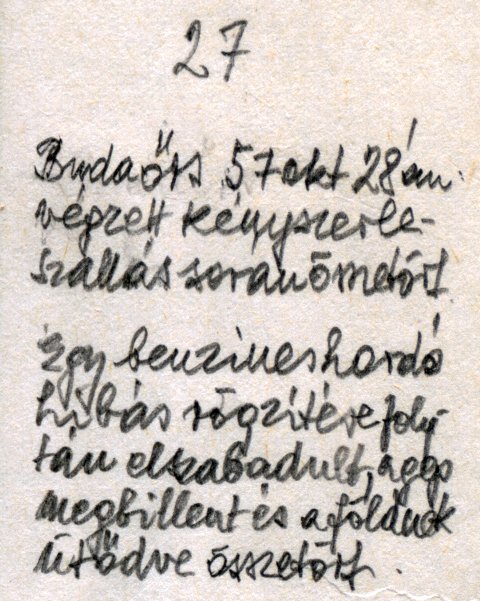 27
Budaörs 57 okt 28 án
végzett kényszerle-
szállás során
Egy benzineshordó
hibás rögzítése foly-
tán elszabadult, a gép
megbillent és a földnek
ütődve összetört.